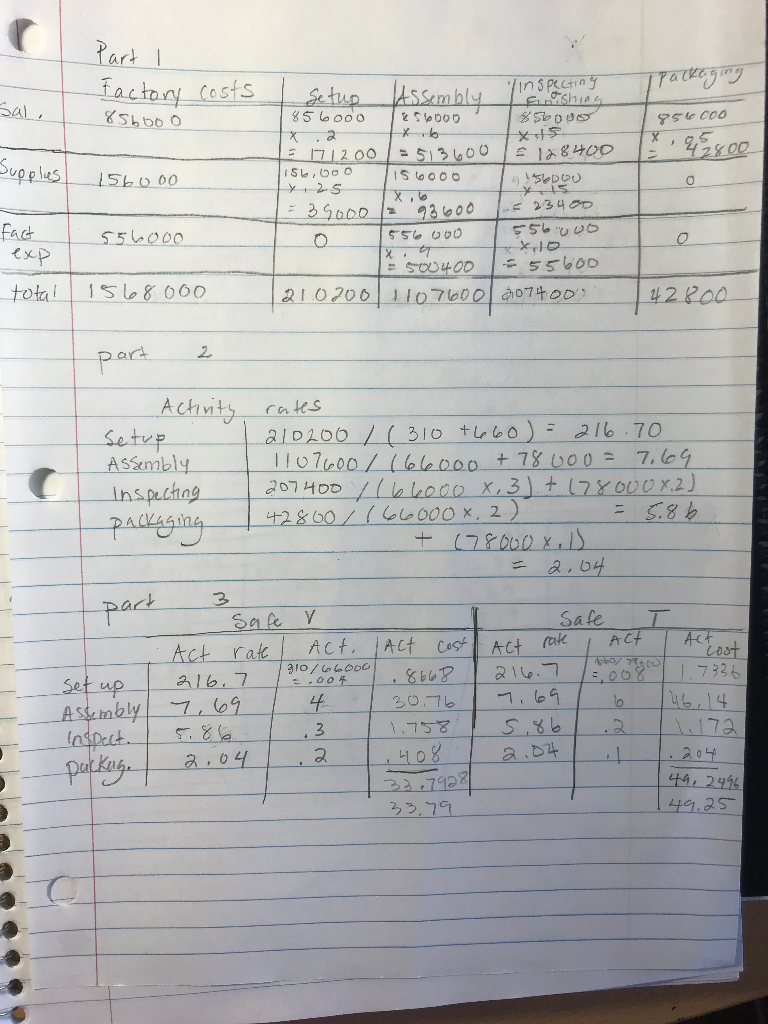 Part 1
Factory costs Setup Assembly Inspecting & Finishing Packaging
Sal. 856000 856000 856000 856000 856000
x .2 x .6 x .15 x .05
= 171200 = 513600 = 128400 = 42800
Supplies 156000 156,000 156000 156000 0
x .25 x .6 x .15
= 39000 = 93600 = 23400
Fact exp 556000 0 556000 556000 0
x .9 x .10
= 500400 = 55600
total 1568000 210200 1107600 207400 42800
part 2
Activity rates
Setup 210200 / ( 310 + 660 ) = 216.70
Assembly 1107600 / (66000 + 78000 = 7.69
Inspecting 207400 / (66000 x .3) + (78000 x .2)
packaging 42800 / (66000 x .2) = 5.86
+ (78000 x .1)
= 2.04
part 3
Safe V Safe T
Act rate Act. Act cost Act rate Act Act cost
310/66000 660/78000
Set up 216.7 = .004 .8668 216.7 = .008 1.7336
Assembly 7.69 4 30.76 7.69 6 46.14
inspect. 5.86 .3 1.758 5.86 .2 1.172
packag. 2.04 .2 .408 2.04 .1 .204
33.7928 49.2496
33.79 49.25